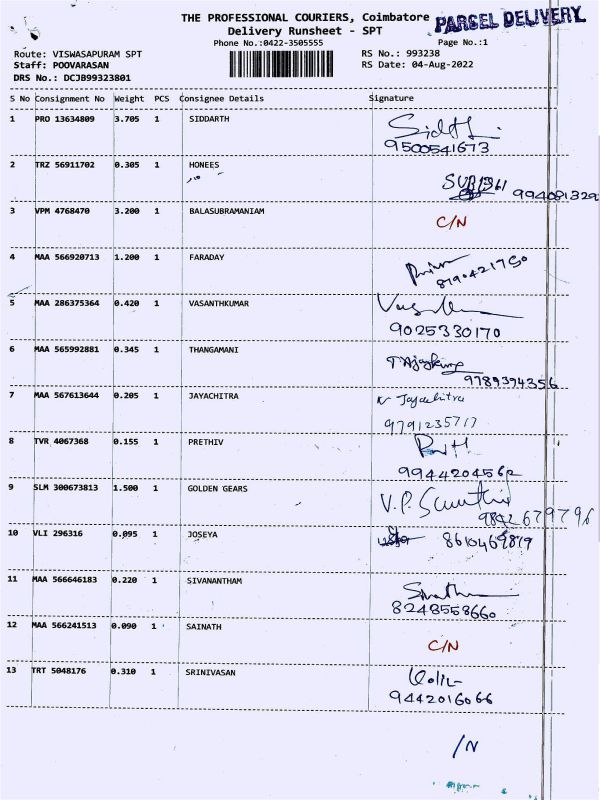 THE PROFESSIONAL COURIERS, Coimbatore PARCEL DELIVERY
Delivery Runsheet - SPT
Phone No.:0422-3505555 Page No.:1
Route: VISWASAPURAM SPT RS No.: 993238
Staff: POOVARASAN RS Date: 04-Aug-2022
DRS No.: DCJB99323801
S No Consignment No Weight PCS Consignee Details Signature
1 PRO 13634809 3.705 1 SIDDARTH
9500541673
2 TRZ 56911702 0.305 1 HONEES
3 VPM 4768470 3.200 1 BALASUBRAMANIAM C/N
4 MAA 566920713 1.200 1 FARADAY
8190421750
5 MAA 286375364 0.420 1 VASANTHKUMAR
9025330170
6 MAA 565992881 0.345 1 THANGAMANI
9789394356
7 MAA 567613644 0.205 1 JAYACHITRA
9791235717
8 TVR 4067368 0.155 1 PRETHIV
9944204562
9 SLM 300673813 1.500 1 GOLDEN GEARS V.P.
9842679796
10 VLI 296316 0.095 1 JOSEYA
11 MAA 566646183 0.220 1 SIVANANTHAM
8248558660
12 MAA 566241513 0.090 1 SAINATH
C/N
13 TRT 5048176 0.310 1 SRINIVASAN
9442016066
/N